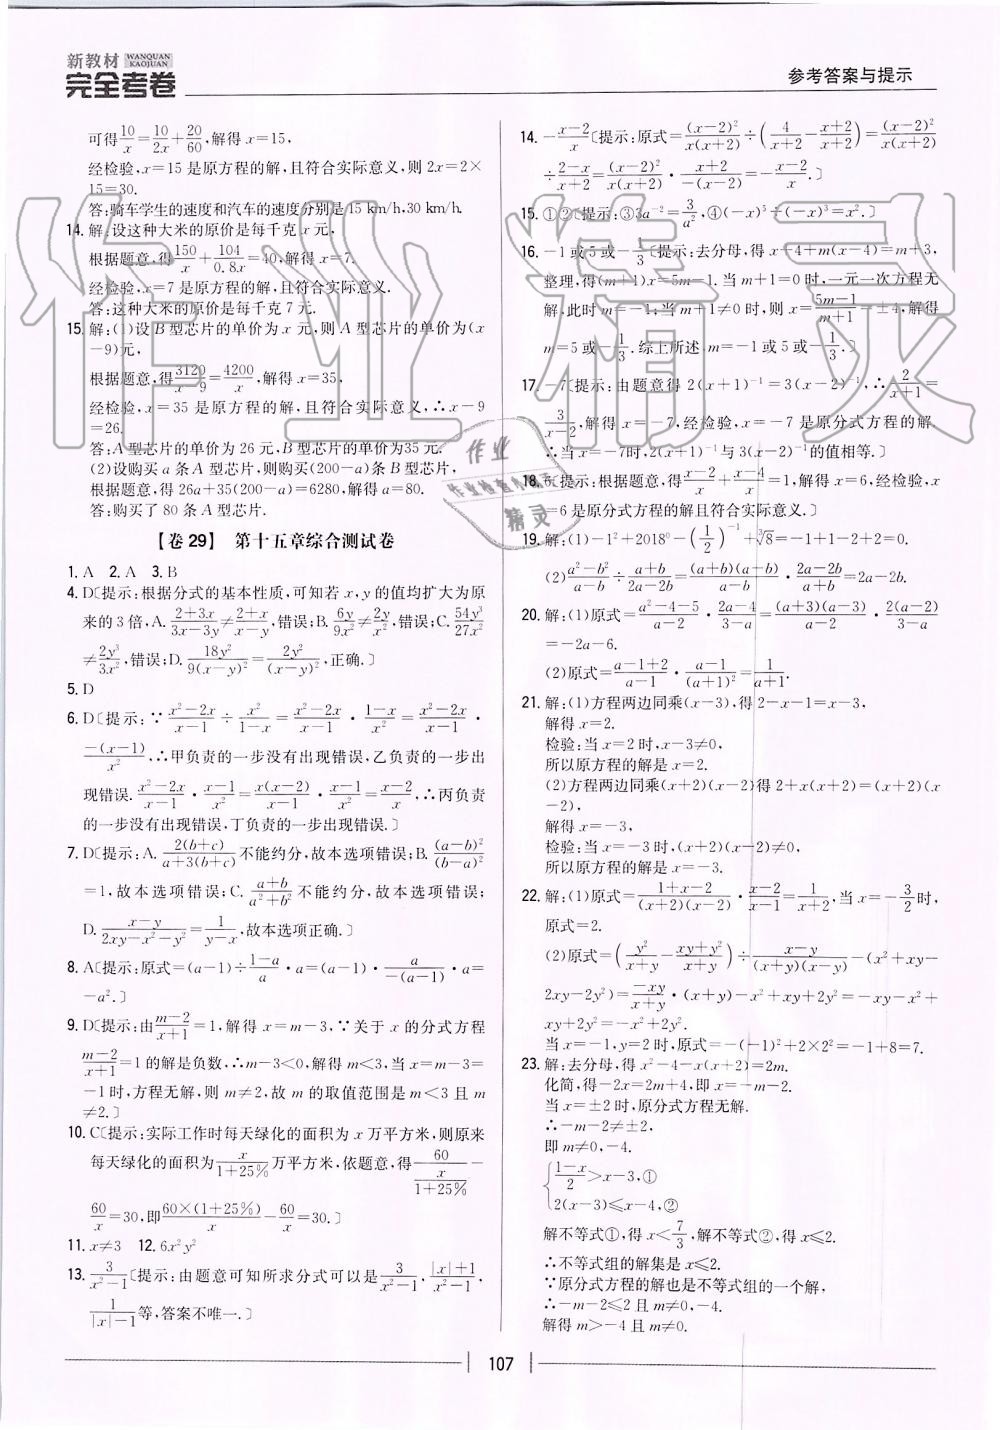 新教材 WANQUAN KAOJUAN
完全考卷
参考答案与提示
可得10/x=10/2x+20/60,解得 x=15,
经检验,x=15 是原方程的解,且符合实际意义,则 2x=2×
15=30.
答:骑车学生的速度和汽车的速度分别是 15 km/h,30 km/h.
14. 解:设这种大米的原价是每千克 x 元,
根据题意,得150/x+104/0.8x=40,解得 x=7.
经检验,x=7 是原方程的解,且符合实际意义.
答:这种大米的原价是每千克 7 元.
15. 解:(1)设 B 型芯片的单价为 x 元,则 A 型芯片的单价为(x
-9)元,
根据题意,得3120/x-9=4200/x,解得 x=35,
经检验,x=35 是原方程的解,且符合实际意义,∴x-9
=26.
答:A 型芯片的单价为 26 元,B 型芯片的单价为35 元.
(2)设购买 a 条 A 型芯片,则购买(200-a)条 B 型芯片,
根据题意,得 26a+35(200-a)=6280,解得 a=80.
答:购买了 80 条 A 型芯片.
【卷 29】 第十五章综合测试卷
1. A 2. A 3. B
4. D〔提示:根据分式的基本性质,可知若 x,y 的值均扩大为原
来的 3 倍,A.(2+3x)/(3x-3y)≠(2+x)/(x-y),错误;B.6y/9x²≠2y/x²,错误;C.54y³/27x²
≠2y³/3x²,错误;D.18y²/9(x-y)²=2y²/(x-y)²,正确.〕
5. D
6. D〔提示:∵(x²-2x)/(x-1)÷x²/(1-x)=(x²-2x)/(x-1)·(1-x)/x²=(x²-2x)/(x-1)·
-(x-1)/x²,∴甲负责的一步没有出现错误,乙负责的一步出
现错误.(x²-2x)/(x-1)·(x-1)/x²=x(x-2)/(x-1)·(x-1)/x²=(x-2)/x,∴丙负责
的一步没有出现错误,丁负责的一步出现错误.〕
7. D〔提示:A.2(b+c)/(a+3(b+c))不能约分,故本选项错误;B.(a-b)²/(b-a)²
=1,故本选项错误;C.(a+b)/(a²+b²)不能约分,故本选项错误;
D.(x-y)/(2xy-x²-y²)=1/(y-x),故本选项正确.〕
8. A〔提示:原式=(a-1)÷(1-a)/a·a=(a-1)·a/-(a-1)·a=
-a².〕
9. D〔提示:由(m-2)/(x+1)=1,解得 x=m-3,∵关于 x 的分式方程
(m-2)/(x+1)=1的解是负数,∴m-3<0,解得 m<3,当 x=m-3=
-1时,方程无解,则 m≠2,故 m 的取值范围是 m<3 且 m
≠2.〕
10. C〔提示:实际工作时每天绿化的面积为 x 万平方米,则原来
每天绿化的面积为x/(1+25%)万平方米,依题意,得60/(x/(1+25%))-
60/x=30,即60×(1+25%)/x-60/x=30.〕
11. x≠3 12. 6x²y²
13. 3/(x²-1)〔提示:由题意可知所求分式可以是3/(x²-1),(|x|+1)/(x²-1),
1/(|x|-1)等,答案不唯一.〕
14. -(x-2)/x〔提示:原式=(x-2)²/x(x+2)÷(4/(x+2)-(x+2)/(x+2))=(x-2)²/x(x+2)
÷(2-x)/(x+2)=(x-2)²/x(x+2)·(x+2)/-(x-2)=-(x-2)/x.〕
15. ①②〔提示:③3a⁻²=3/a²,④(-x)⁵÷(-x)³=x².〕
16. -1或5或-1/3〔提示:去分母,得 x+4+m(x-4)=m+3,
整理,得(m+1)x=5m-1.当 m+1=0 时,一元一次方程无
解,此时 m=-1;当 m+1≠0 时,则 x=(5m-1)/(m+1)=±4,解得
m=5 或-1/3.综上所述,m=-1 或 5 或-1/3.〕
17. -7〔提示:由题意得 2(x+1)⁻¹=3(x-2)⁻¹,∴2/(x+1)=
3/(x-2),解得 x=-7,经检验,x=-7 是原分式方程的解,
∴当 x=-7时,2(x+1)⁻¹与 3(x-2)⁻¹的值相等.〕
18. 6〔提示:根据题意,得(x-2)/x+4/(x+x)=1,解得 x=6,经检验,x
=6 是原分式方程的解且符合实际意义.〕
19. 解:(1)-1²+2018⁰-(1/2)⁻¹+∛8=-1+1-2+2=0.
(2)(a²-b²)/(a-b)÷(a+b)/(2a-2b)=(a+b)(a-b)/(a-b)·(2a-2b)/(a+b)=2a-2b.
20. 解:(1)原式=(a²-4-5)/(a-2)·(2a-4)/(3-a)=(a+3)(a-3)/(a-2)·2(a-2)/(3-a)
=-2a-6.
(2)原式=(a-1+2)/(a-1)·(a-1)/(a+1)²=1/(a+1).
21. 解:(1)方程两边同乘(x-3),得 2-x-1=x-3,
解得 x=2.
检验:当 x=2 时,x-3≠0,
所以原方程的解是 x=2.
(2)方程两边同乘(x+2)(x-2)得 2+x(x+2)=(x+2)(x
-2),
解得 x=-3,
检验:当 x=-3 时,(x+2)(x-2)≠0,
所以原方程的解是 x=-3.
22. 解:(1)原式=(1+x-2)/(x+2)(x-2)·(x-2)/(x-1)=1/(x+2),当 x=-3/2时,
原式=2.
(2)原式=(y²/(x+y)-(xy+y²)/(x+y))÷(x-y)/(x+y)(x-y)-(x²+xy-
2xy-2y²)=-xy/(x+y)·(x+y)-x²+xy+2y²=-xy-x²+
xy+2y²=-x²+2y².
当 x=-1,y=2 时,原式=-(-1)²+2×2²=-1+8=7.
23. 解:去分母,得 x²-4-x(x+2)=2m.
化简,得-2x=2m+4,即 x=-m-2.
当 x=±2 时,原分式方程无解.
∴-m-2≠±2,
即 m≠0,-4.
{(1-x)/2>x-3,①
2(x-3)≤x-4,②
解不等式①,得 x<7/3,解不等式②,得 x≤2.
∴不等式组的解集是 x≤2.
∵原分式方程的解也是不等式组的一个解,
∴-m-2≤2 且 m≠0,-4.
解得 m>-4 且 m≠0.
107
作业精灵
作业
作业检查小
精灵